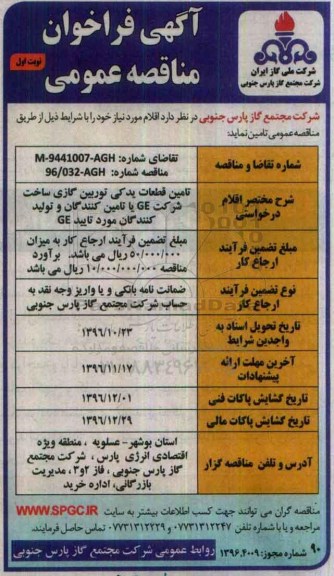 آگهی فراخوان
مناقصه عمومی
نوبت اول
شرکت ملی گاز ایران
شرکت مجتمع گاز پارس جنوبی
شرکت مجتمع گاز پارس جنوبی در نظر دارد اقلام مورد نیاز خود را با شرایط ذیل از طریق
مناقصه عمومی تامین نماید:
شماره تقاضا و مناقصه
تقاضای شماره: M-9441007-AGH
مناقصه شماره: 96/032-AGH
شرح مختصر اقلام
درخواستی
تامین قطعات یدکی توربین گازی ساخت
شرکت GE یا تامین کنندگان و تولید
کنندگان مورد تایید GE
مبلغ تضمین فرآیند
ارجاع کار
مبلغ تضمین فرآیند ارجاع کار به میزان
۵۰۰/۰۰۰/۰۰۰ ریال می باشد. برآورد
مناقصه ۱۰/۰۰۰/۰۰۰/۰۰۰ ریال می باشد
نوع تضمین فرآیند
ارجاع کار
ضمانت نامه بانکی و یا واریز وجه نقد به
حساب شرکت مجتمع گاز پارس جنوبی
تاریخ تحویل اسناد به
واجدین شرایط
۱۳۹۶/۱۰/۲۳
آخرین مهلت ارائه
پیشنهادات
۱۳۹۶/۱۱/۱۷
تاریخ گشایش پاکات فنی
۱۳۹۶/۱۲/۰۱
تاریخ گشایش پاکات مالی
۱۳۹۶/۱۲/۲۹
آدرس و تلفن مناقصه گزار
استان بوشهر- عسلویه ، منطقه ویژه
اقتصادی انرژی پارس ، شرکت مجتمع
گاز پارس جنوبی ، فاز ۲و۳ ، مدیریت
بازرگانی، اداره خرید
مناقصه گران می توانند جهت کسب اطلاعات بیشتر به سایت WWW.SPGC.IR
مراجعه و یا با شماره تلفن ۰۷۷۳۱۳۱۲۲۴۷ و ۰۷۷۳۱۳۱۲۲۲۹ تماس حاصل فرمایند.
۹۰ شماره مجوز: ۱۳۹۶.۴۰۰۹ روابط عمومی شرکت مجتمع گاز پارس جنوبی